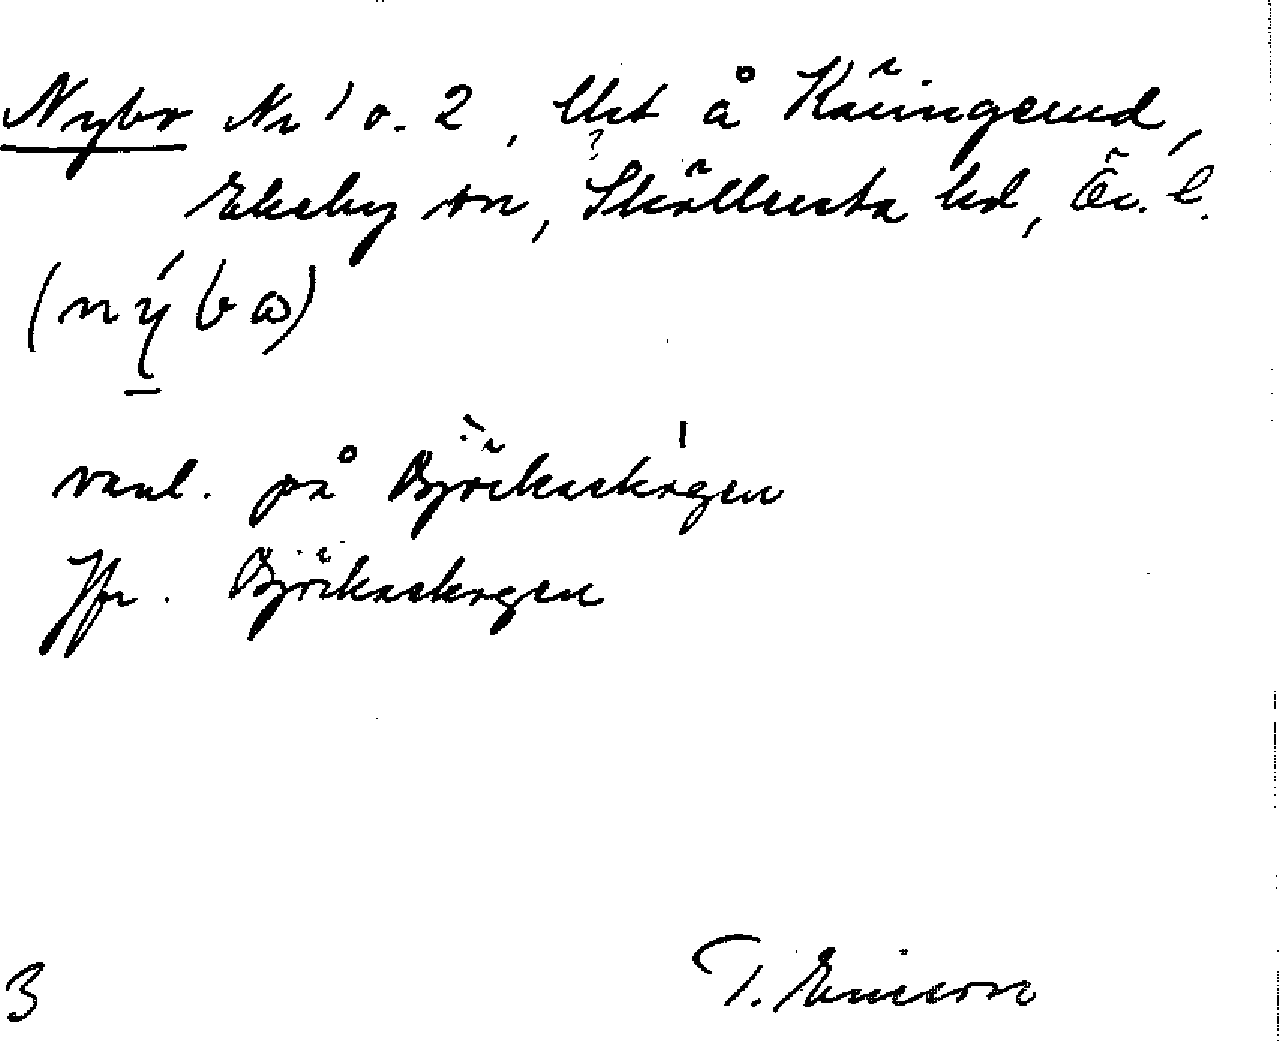 Nybo Nr 1 o. 2, Urt å Käringerud,
Ekeby sn, Sköllersta hd, Ör. l.
(nýbω)
vanl. på Björkaskogen
Jfr. Björkaskogen
3 T. Ericson